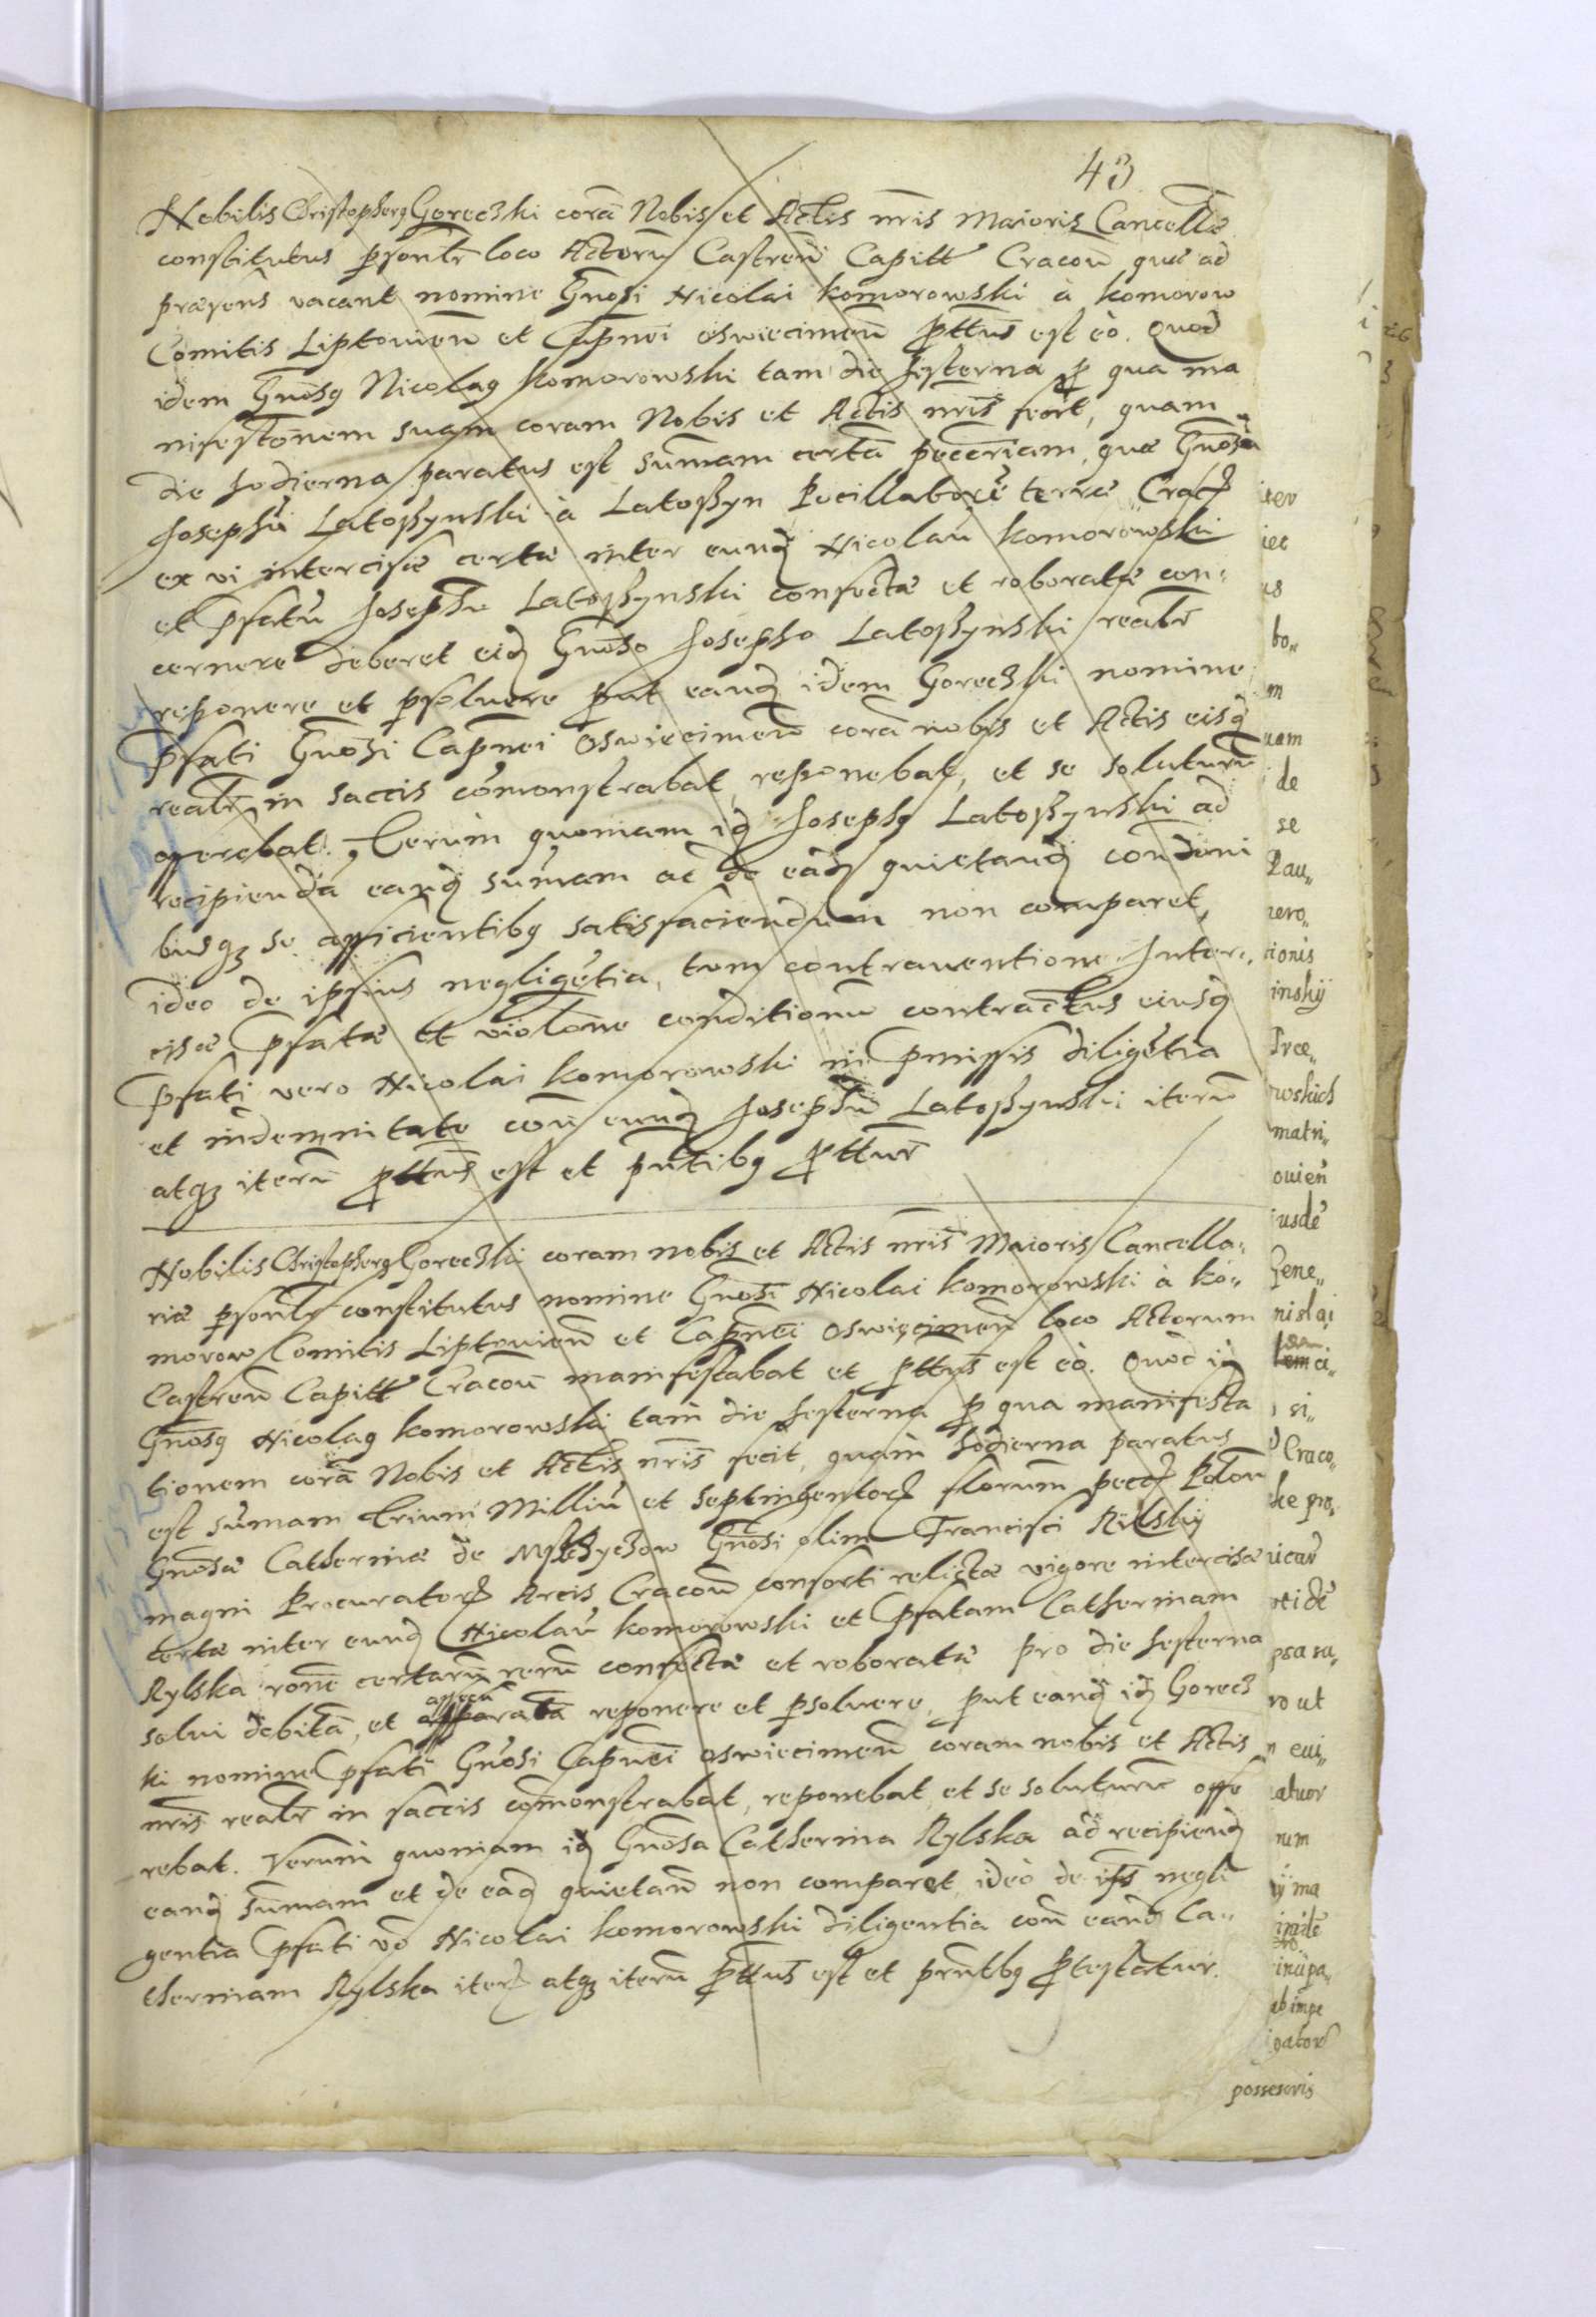 43
Nobilis Christopherꝯ Goreczki corā Nobis et Actis nr̄is Maioris Cancellæ
constitutus psonlr̄ loco Actoru Castren̄ Capitt̄ Cracou̅ quæ ad
præsens vacant nomine Gn̄osi Nicolai Komorowski à Komorow
Comitis Liptouien̄ et Capnei Oswiecimen̄ ꝓttus̄ est eò. Quod
idem Gn̄osꝯ Nicolaꝯ Komorowski tam die hesterna ꝓ qua ma
nifestōnem suam coram Nobis et Actis nr̄is fecit, quam
die hodierna paratus est sum̄am certā pecc̄riam, quā Gn̄osꝯ
Josephū Latoszynski à Latoszyn Pocillatore terræ Cracꝭ
ex vi intercisæ certæ inter eunḏ Nicolau̅ Komorowski
et p̄fatu̅ Josephu Latoszynski confectæ et roboratæ con,
cernere deberet eiḏ Gn̄oso Josepho Latoszynski realr̄
reponere et psoluere put eanḏ idem Goreczki nomine
p̄fati Gn̄osi Capnei Oswiecimen̄ corā nobis et Actis eisḏ
realr̄ in saccis com̄onstrabat, reponebat, et se soluturū
offerebat. Verùm quoniam iḏ Josephꝯ Latoszynski ad
recipiendā eanḏ sum̄am ac de eaḏ quietanḏ conditioni
busqꝫ se afficientibꝯ satisfaciendum non comparet,
ideo de ipsius negligētia, tum contrauentione Inter,
cisæ p̄fatæ et violōne conditionu̅ contractus eiusḏ
p̄fati vero Nicolai Komorowski in p̄missis diligētia
et indemnitate con̄ eunḏ Josephū Latoszynski iteru̅
atqꝫ iteru̅ ꝓttus̄ est et pn̄tibꝯ ꝓttur̄
Nobilis Christopherꝯ Goreczki coram nobis et Actis nr̄is Maioris Cancella,
riæ psonlr̄ constitutus nomine Gn̄osi Nicolai Komorowski à Ko,
morow Comitis Liptouien̄ et Capnei Oswięcimen̄ loco Actorum
Castren̄ Capitt̄ Cracou̅ manifestabat et ꝓttus̄ est eò. Quòd iḏ
Gn̄osꝯ Nicolaꝯ Komorowski tam die hesterna ꝓ qua manifesta
tionem corā Nobis et Actis nr̄is fecit, quàm hodierna paratus
est sum̄am Trium Milliu̅ et Septingentorꝭ florum̄ pecꝭ Polon̄
Gn̄osæ Catherinæ de Gn̄osi olim Francisci Rilskij
magni Procuratorꝭ Arcis Cracou̅ consorti relictæ vigore intercisæ
certæ inter eunḏ Nicolau̅ Komorowski et p̄fatam Catherinam
Rylska rōne certarū reru̅ confectæ et roboratæ pro die hesterna
solui debitā, et assecuratā reponere et psoluere, put eanḏ iḏ Gorecz
ki nomine p̄fati Gn̄osi Capnei Oswiecimen̄ coram nobis et Actis
nr̄is realr̄ in saccis com̄onstrabat, reponebat, et se soluturū offe
rebat. Verùm quoniam iḏ Gn̄osa Catherina Rylska ad recipienḏ
eanḏ sum̄am et de eaḏ quietan̄ non comparet, ideò de ips̄ negli
gentia p̄fati vō Nicolai Komorowski diligentia con̄ eanḏ Ca,
therinam Rylska iterꝭ atqꝫ iteru̅ ꝓttus̄ est et prn̄tibꝯ ꝓtestatur.
bo,,
m
uam
de
se
Pau,,
nero,
tionis
inskij
Præ,
wskich
matri,,
ouien̄
iusdē
Gene,,
nislai
si,,
Craco,
ro ut
cui,,
atuor
num
ij ma
ab impe
possessoris